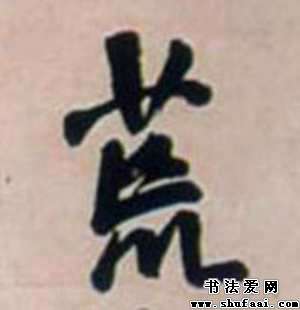 荒
书法爱网
www.shufaai.com